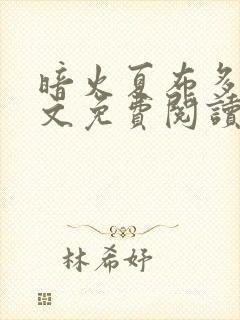 暗火夏布多
文免費閱讀
林希妤